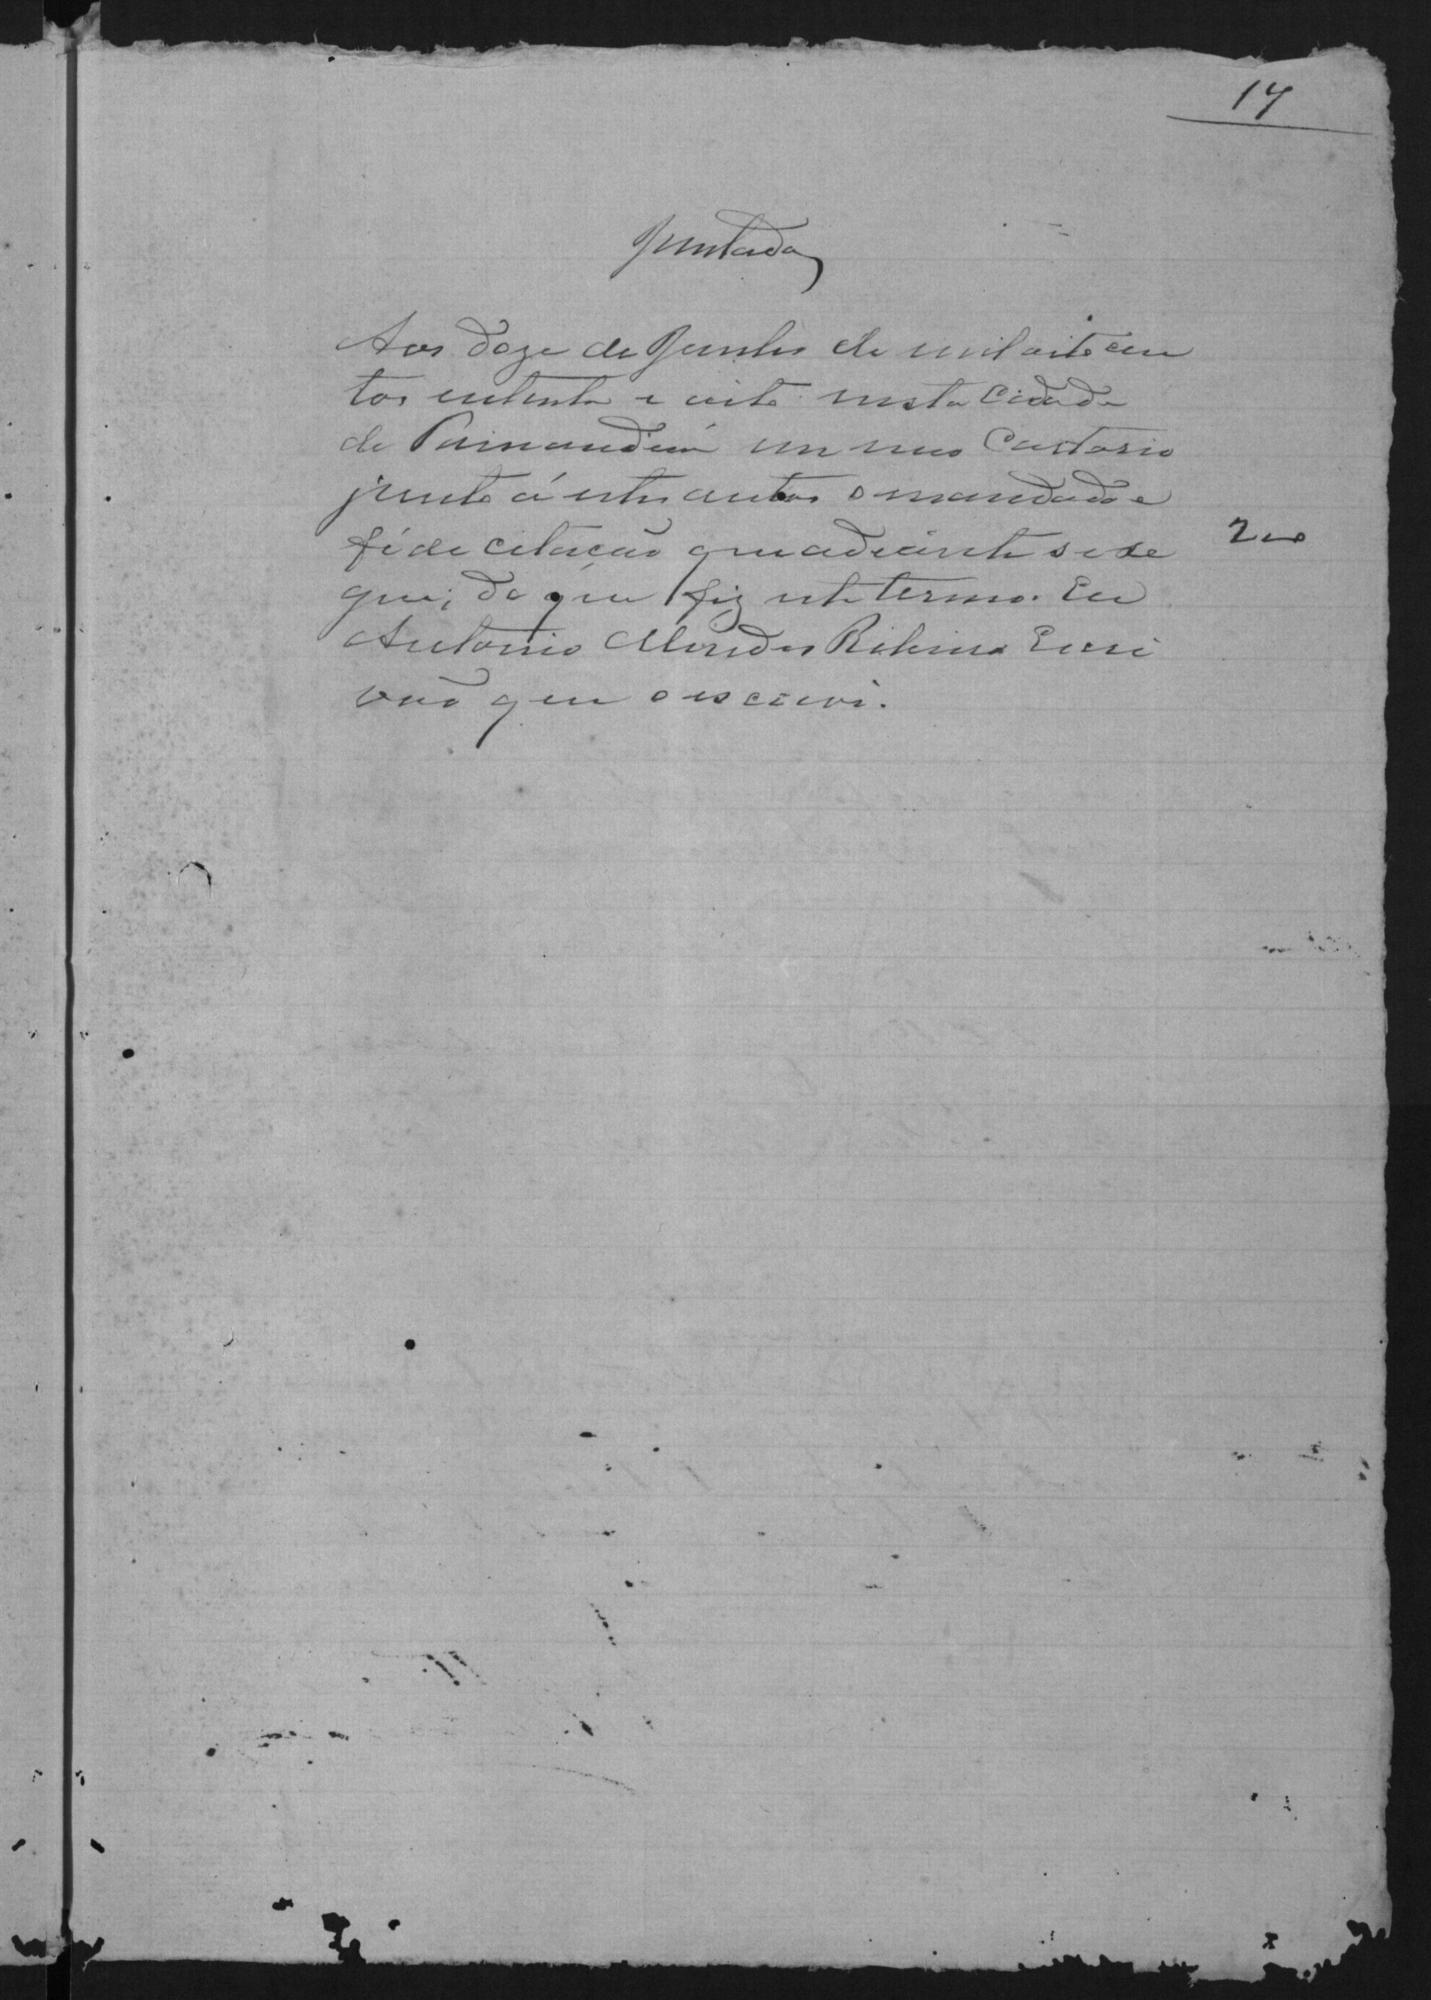 14
Juntada
Aos doze de Junho de mil oitocen
tos oitenta e oito nesta Cidade
de em meo Cartorio
junto á estes autos o mandado e
fé de citação que adiante se se
gue; do que fiz este termo. Eu
Antonio Mendes Ribeiro Escri
vão que o escrevi.
200